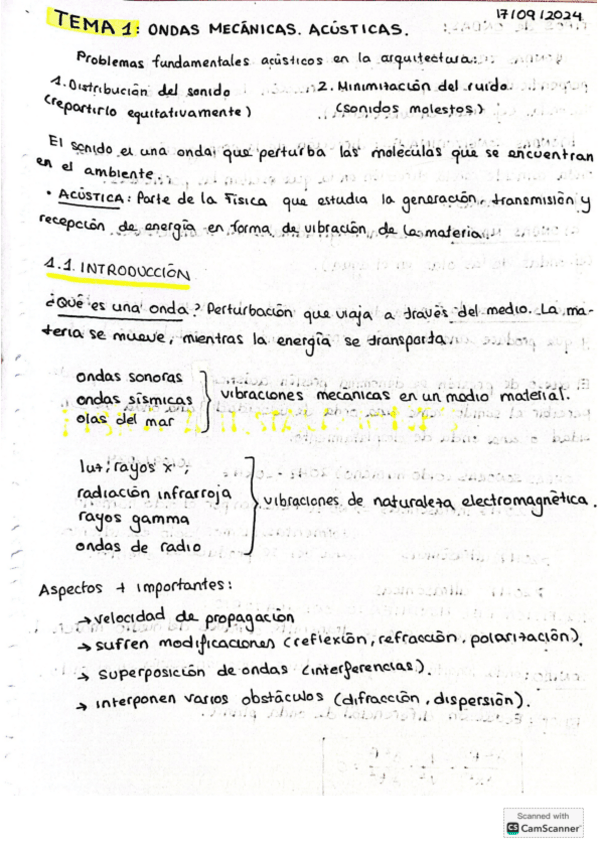 17/09/2024
TEMA 1: ONDAS MECÁNICAS. ACÚSTICAS.
Problemas fundamentales acústicos en la arquitectura:
1. Distribución del sonido
(repartirlo equitativamente)
2. Minimización del ruido
(sonidos molestos)
El sonido es una onda que perturba las moléculas que se encuentran
en el ambiente.
• ACÚSTICA: Parte de la Física que estudia la generación, transmisión y
recepción de energía en forma de vibración de la materia.
1.1. INTRODUCCIÓN
¿Qué es una onda? Perturbación que viaja a través del medio. La ma-
teria se mueve, mientras la energía se transporta.
ondas sonoras
ondas sísmicas
olas del mar
vibraciones mecánicas en un medio material.
luz, rayos x,
radiación infrarroja
rayos gamma
ondas de radio
vibraciones de naturaleza electromagnética.
Aspectos + importantes:
→ velocidad de propagación
→ sufren modificaciones (reflexión, refracción, polarización).
→ superposición de ondas (interferencias).
→ interponen varios obstáculos (difracción, dispersión).
Scanned with
CS CamScanner